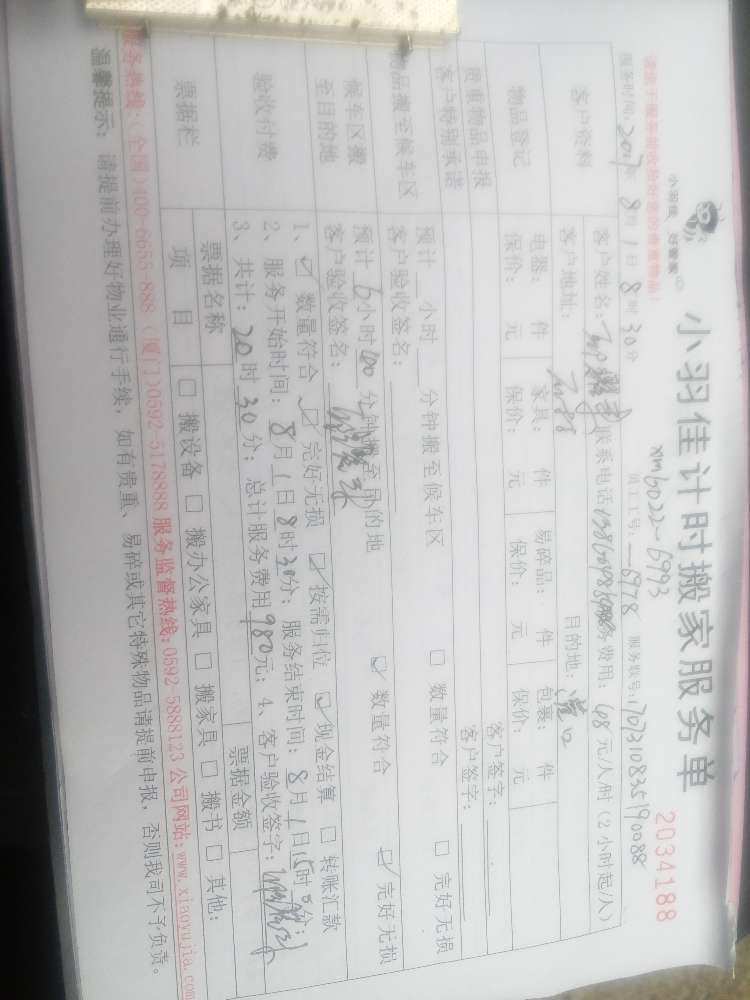 小羽佳 好管家
小羽佳计时搬家服务单
2034188
xm6022-6993
服务时间: 2017年8月1日8时30分
员工工号: 6978
服务账号: 707310835190088
客户资料
客户姓名:
联系电话
服务费用: 68元/人/时(2小时起/人)
客户地址:
目的地:
物品登记
电器: 件 家具: 件 易碎品: 件 包裹: 件
保价: 元 保价: 元 保价: 元 保价: 元
贵重物品申报
客户签字:
客户特别承诺
客户签字:
物品搬至候车区
预计 小时 分钟搬至候车区 □ 数量符合 □ 完好无损
客户验收签名:
候车区搬至目的地
预计 6小时 分钟搬至目的地 ☑ 数量符合 ☑ 完好无损
客户验收签名:
验收付费
1、☑ 数量符合 ☑ 完好无损 ☑ 按需归位 ☑ 现金结算 □ 转账汇款
2、服务开始时间: 8月1日8时30分; 服务结束时间: 8月1日15时 分;
3、共计: 20时30分; 总计服务费用980元; 4、客户验收签字:
票据栏
票据名称
票据金额
项目
□ 搬设备 □ 搬办公家具 □ 搬家具 □ 搬书 □ 其他:
服务热线:(全国)400-6655-888 (厦门)0592-5178888 服务监督热线:0592-5888123 公司网站:www.xiaoyujia.com
温馨提示: 请提前办理好物业通行手续, 如有贵重、易碎或其它特殊物品请提前申报, 否则我司不予负责。